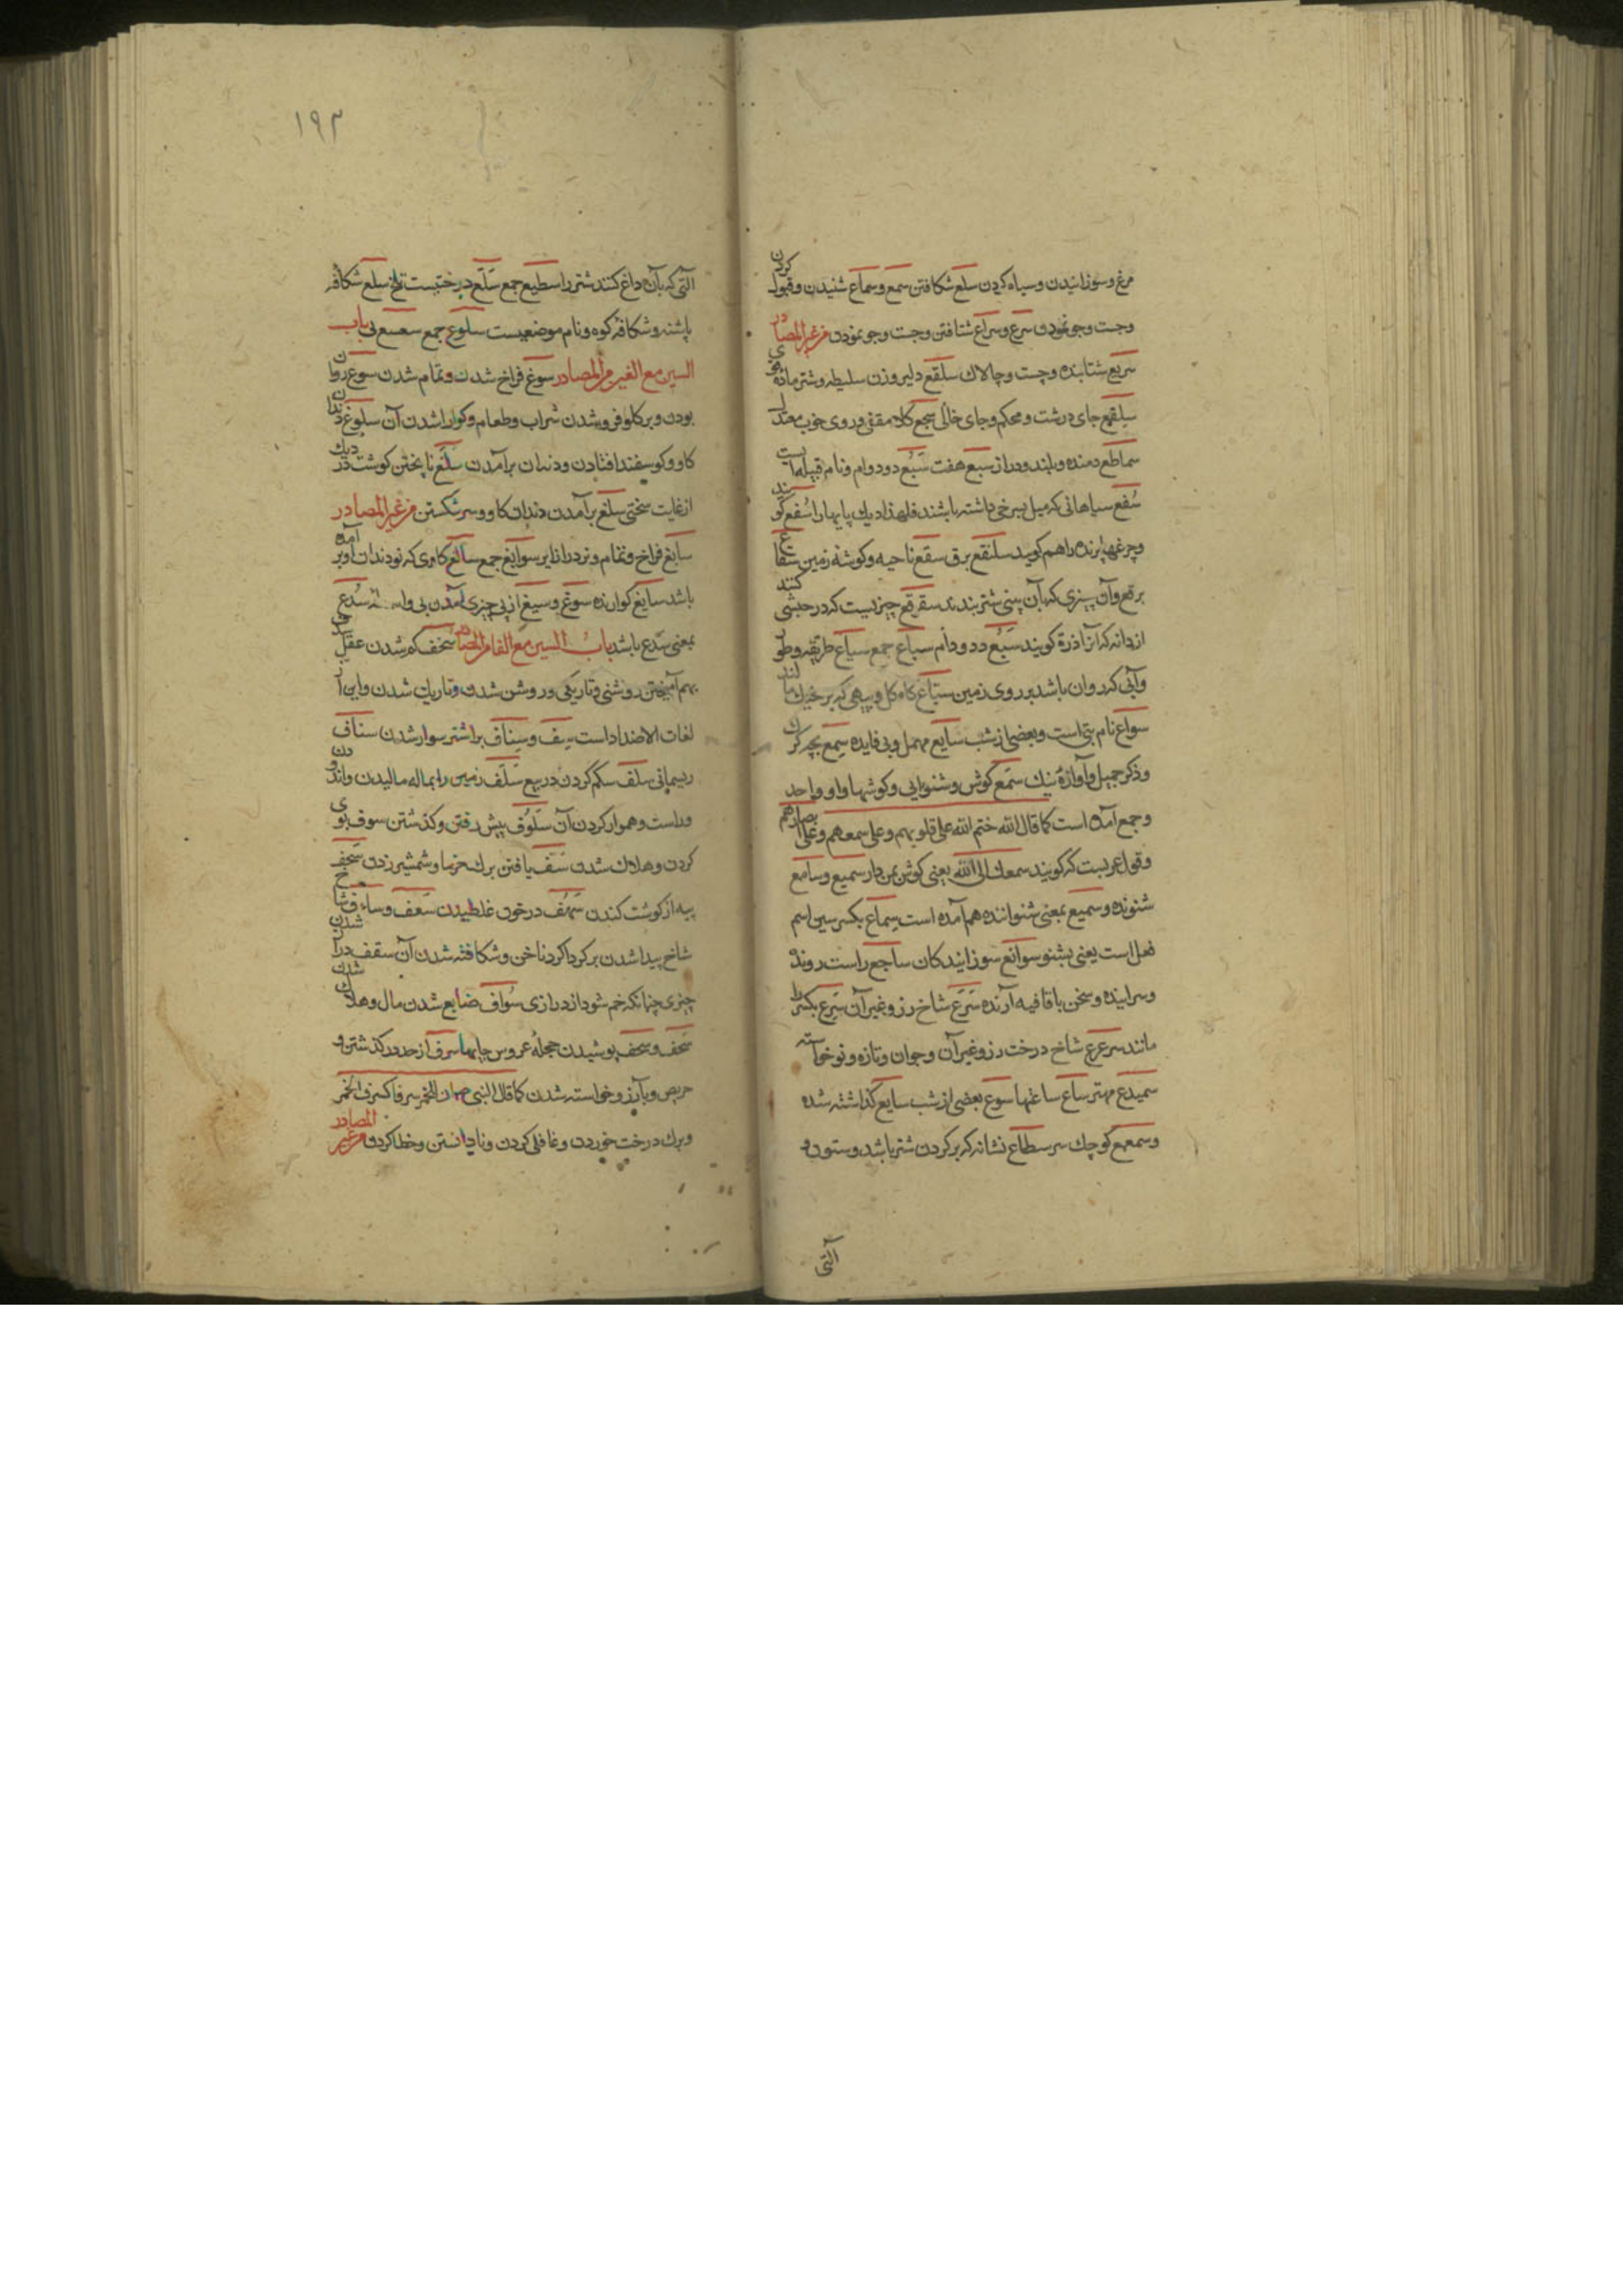 مرغ و سوزانیدن و سیاه کردن سلع شکافتن سمع و سماع شنیدن و قبول کردن
وجست وجو نمودن سرع و سراع شتافتن وجست وجو نمودن من غیر المصادر
سریع شتابنده و چست و چالاک سلقع دلیر وزن سلیطه و شتر ماده قوی
سلقمع جای درشت و محکم وجای خالی سجع کلام مقفی و روی خوب معتدل
سماطع دمنده و بلند و دراز سبع هفت سبع دد و دوام و نام قبیله ایست
سفع سیاهانی که میل بسرخی داشته باشند فلهذا دیک پایها را سفع کویند
وچرغها پرنده را هم کویند سلنقع برق سقع ناحیه و کوشهٔ زمین سقاع
برقع وآن چیزی که بآن بینی شتر بندند سقرقع چیزیست که در حبشی کنند
ازدانه که آنرا ذرة کویند سبع دد و دام سباع جمع سیاع طریقه و طور
وآبی که روان باشد بر روی زمین سیاع کاه کل و پیهی که بر خیک مالند
سواع نام بتی است و بعضی از شب سایع مهمل و بی فایده سمع بچه کرک
وذکر جمیل و آوازهٔ نیک سمع کوش و شنوایی و کوشها و او واحد
وجمع آمده است کما قال الله ختم الله علی قلوبهم وعلی سمعهم وعلی ابصارهم
وقول عربست که کویند سمعک الی الله یعنی کوش بمن دار سمیع و سامع
شنونده و سمیع بمعنی شنواننده هم آمده است سماع بکسر سین اسم
فعل است یعنی بشنو سوانع سوزانیدکان ساجع راست رونده
وسراینده و سخن با قافیه آرنده سرع شاخ رز و غیر آن سرع بکسر را
مانند سرعرع شاخ درخت رز و غیر آن وجوان وتازه و نو خواسته
سمیدع مهتر ساع ساعتها سوع بعضی از شب سایع کذاشته شده
وسمعمع کوچک سر سطاع نشانه که بر کردن شتر باشد و ستون و
آلتی
١٩٣
آلتی که بآن داغ کنند شتر را سطیع جمع سلع درختیست تلخ سلع شکافه
پاشنه و شکافه کوه و نام موضعیست سلوع جمع سعسع بی باب
السین مع الغین من المصادر سوغ فراخ شدن و تمام شدن سوغ روان
بودن و بر کلو فرو شدن شراب و طعام و کوارا شدن آن سلوغ دندان
کاو و کوسفند افتادن و دندان برآمدن سلغ ناپختن کوشت در دیک
از غایت سختی سلغ برآمدن دندان کاو و سر شکستن من غیر المصادر
سابغ فراخ و تمام و سوابغ جمع سالغ کاوی که نو دندان او بر آمده
باشد سایغ کوارنده سوغ و سیغ از پی چیزی آمدن بی
بمعنی باشد باب السین مع الفا من المصادر سخف کم شدن عقل
بهم آمیختن روشنی و تاریکی و روشن شدن و تاریک شدن و این از
لغات الاضداد است و سناف بر اشتر سوار شدن سناف
ریسمانی سلف سلم کردن در بیع سلف زمین را بماله مالیدن و اندودن
وراست و هموار کردن آن سلوف پیش رفتن و کذشتن سوف بوی
کردن و هلاک شدن سف یافتن برک خرما و شمشیر زدن سحف
پیه از کوشت کندن در خون غلطیدن سعف و شاخ
شاخ پیدا شدن بر کرداکرد ناخن و شکافته شدن آن سقف دراز شدن
چیزی چنانکه خم شود از درازی سواف ضایع شدن مال و هلاک شدن
سجف و سجف پوشیدن حجلهٔ عروس سرف از حد در کذشتن و
حریص و بآرزو خواسته شدن کما قال النبی للخمر سرفا کسرف الخمر
وبرک درخت خوردن و غافلی کردن و نادانستن و خطا کردن من غیر المصادر